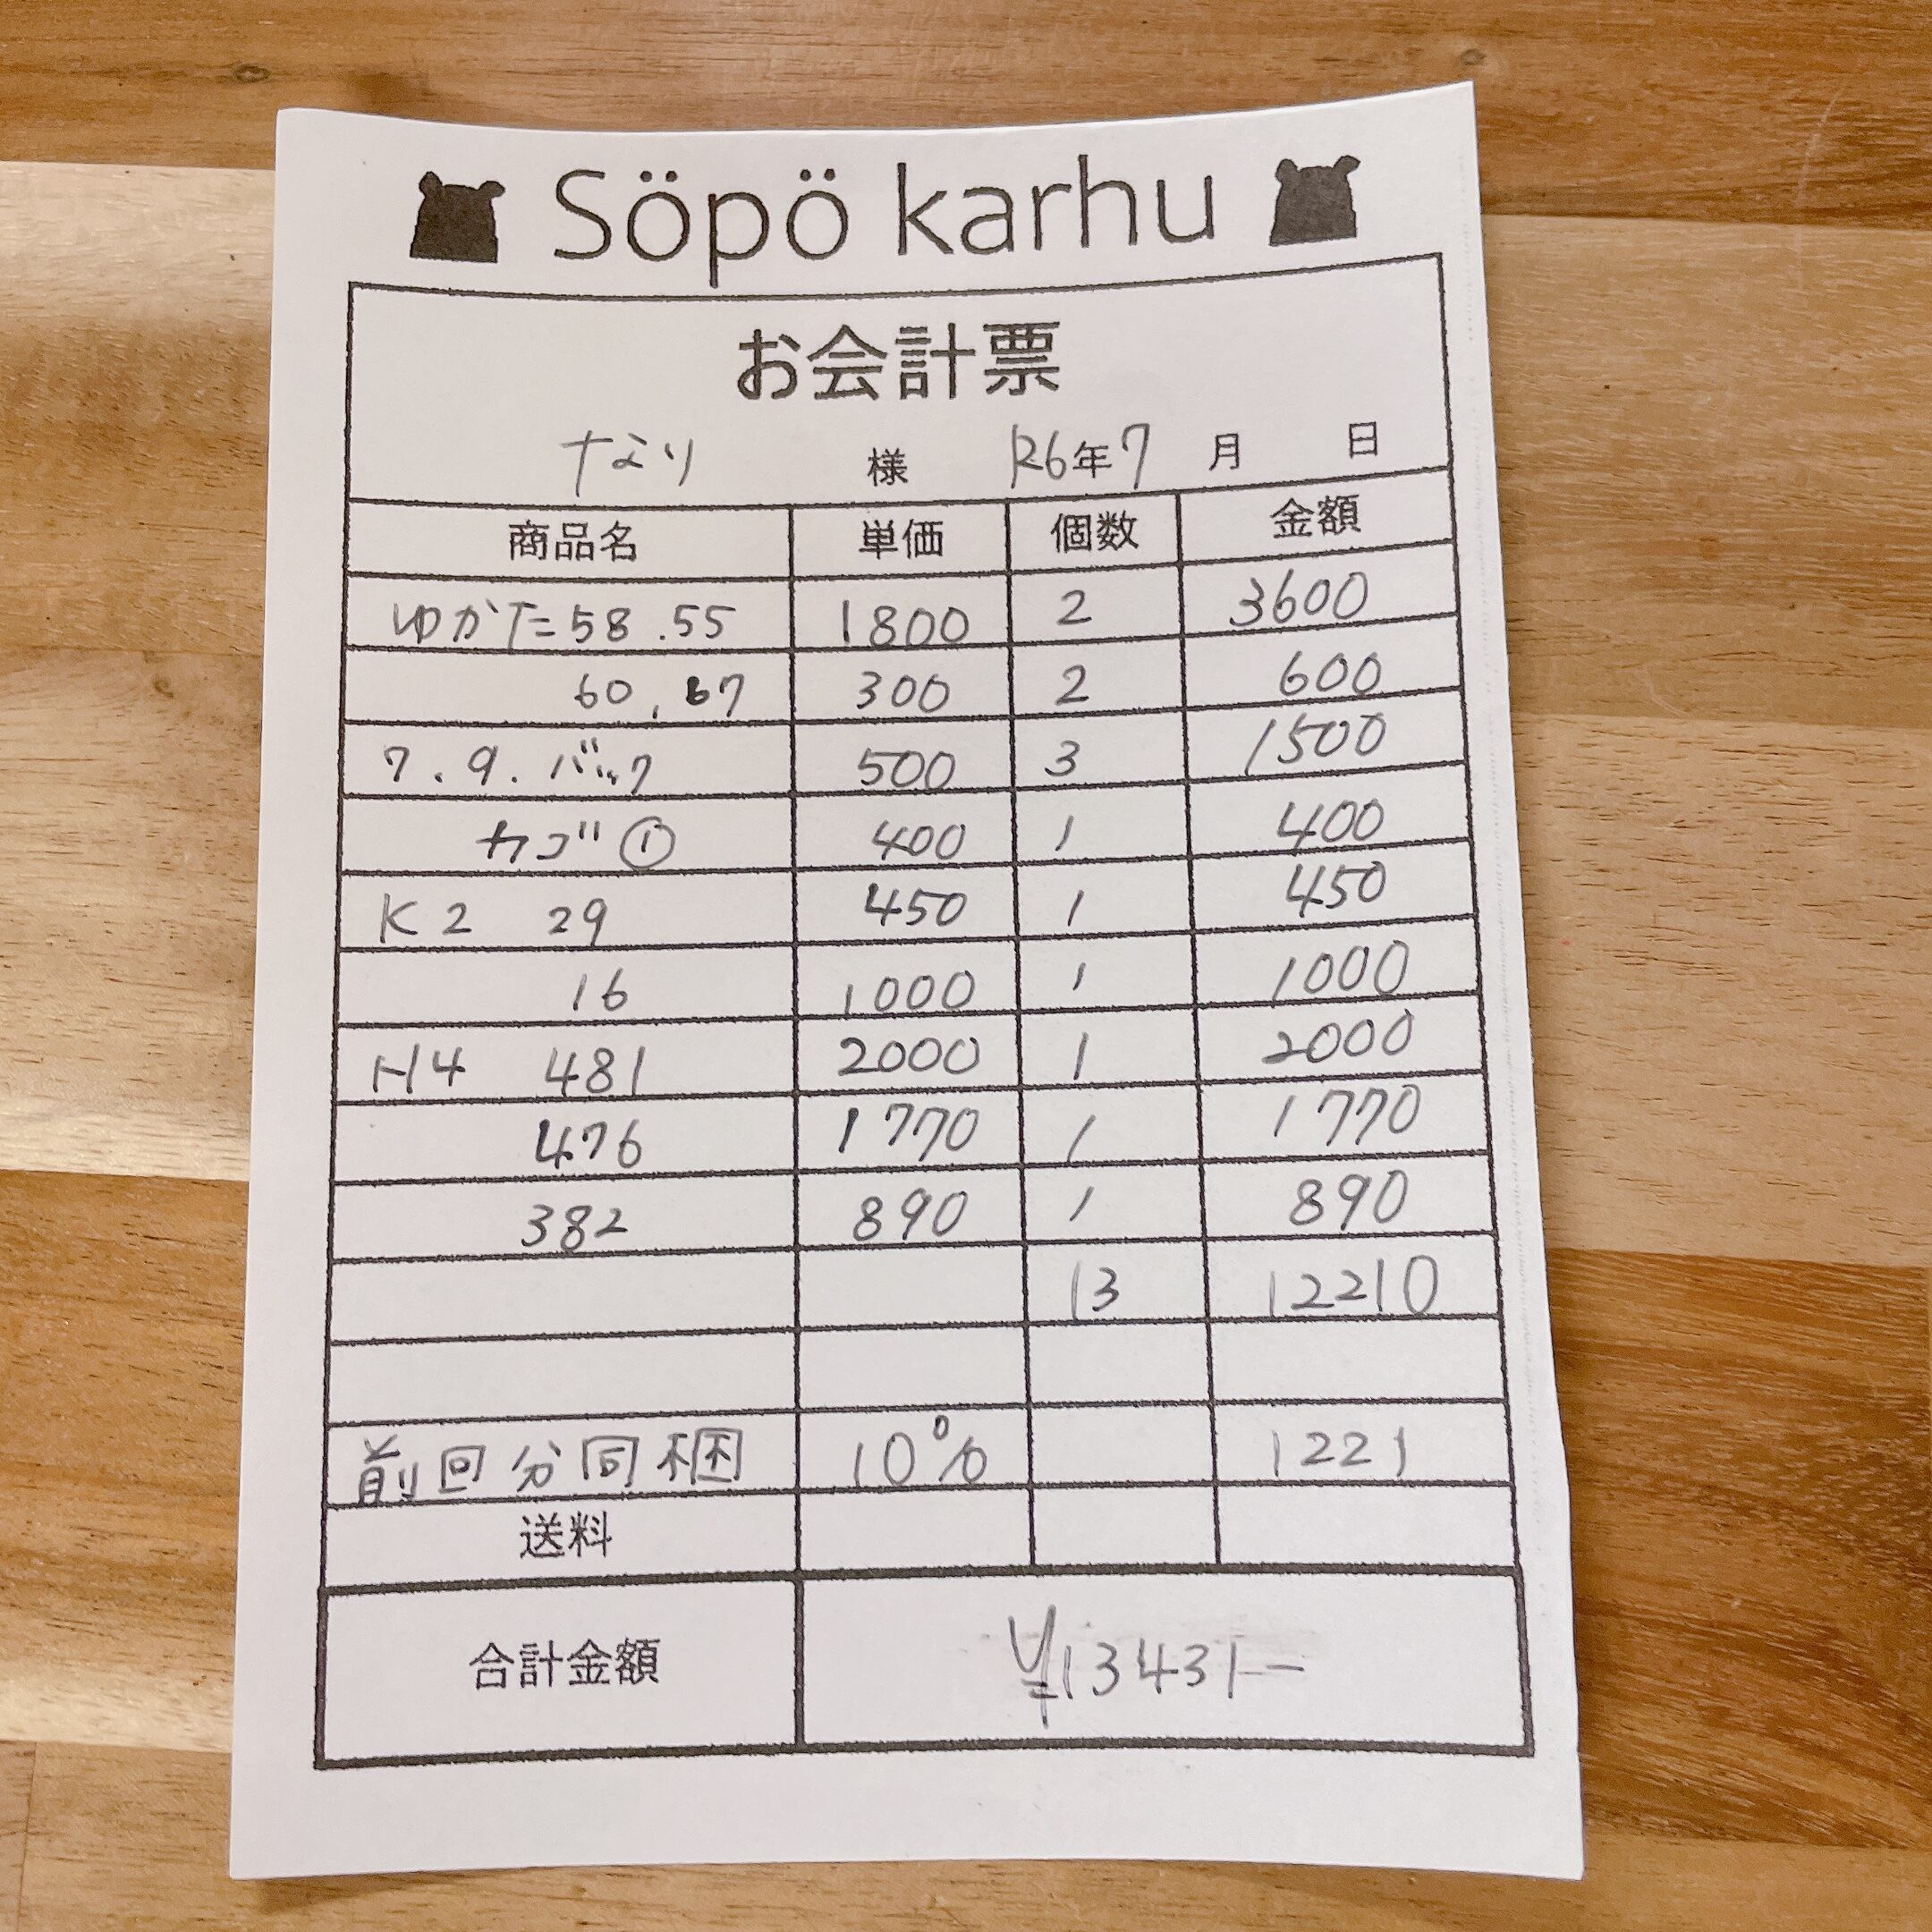 Söpö karhu
お会計票
なり 様 R6年7 月 日
商品名 単価 個数 金額
ゆかた58.55 1800 2 3600
60,67 300 2 600
7.9.バック 500 3 1500
カゴ① 400 1 400
K2 29 450 1 450
16 1000 1 1000
H4 481 2000 1 2000
476 1770 1 1770
382 890 1 890
13 12210
前回分同梱 10% 1221
送料
合計金額 ¥13431-